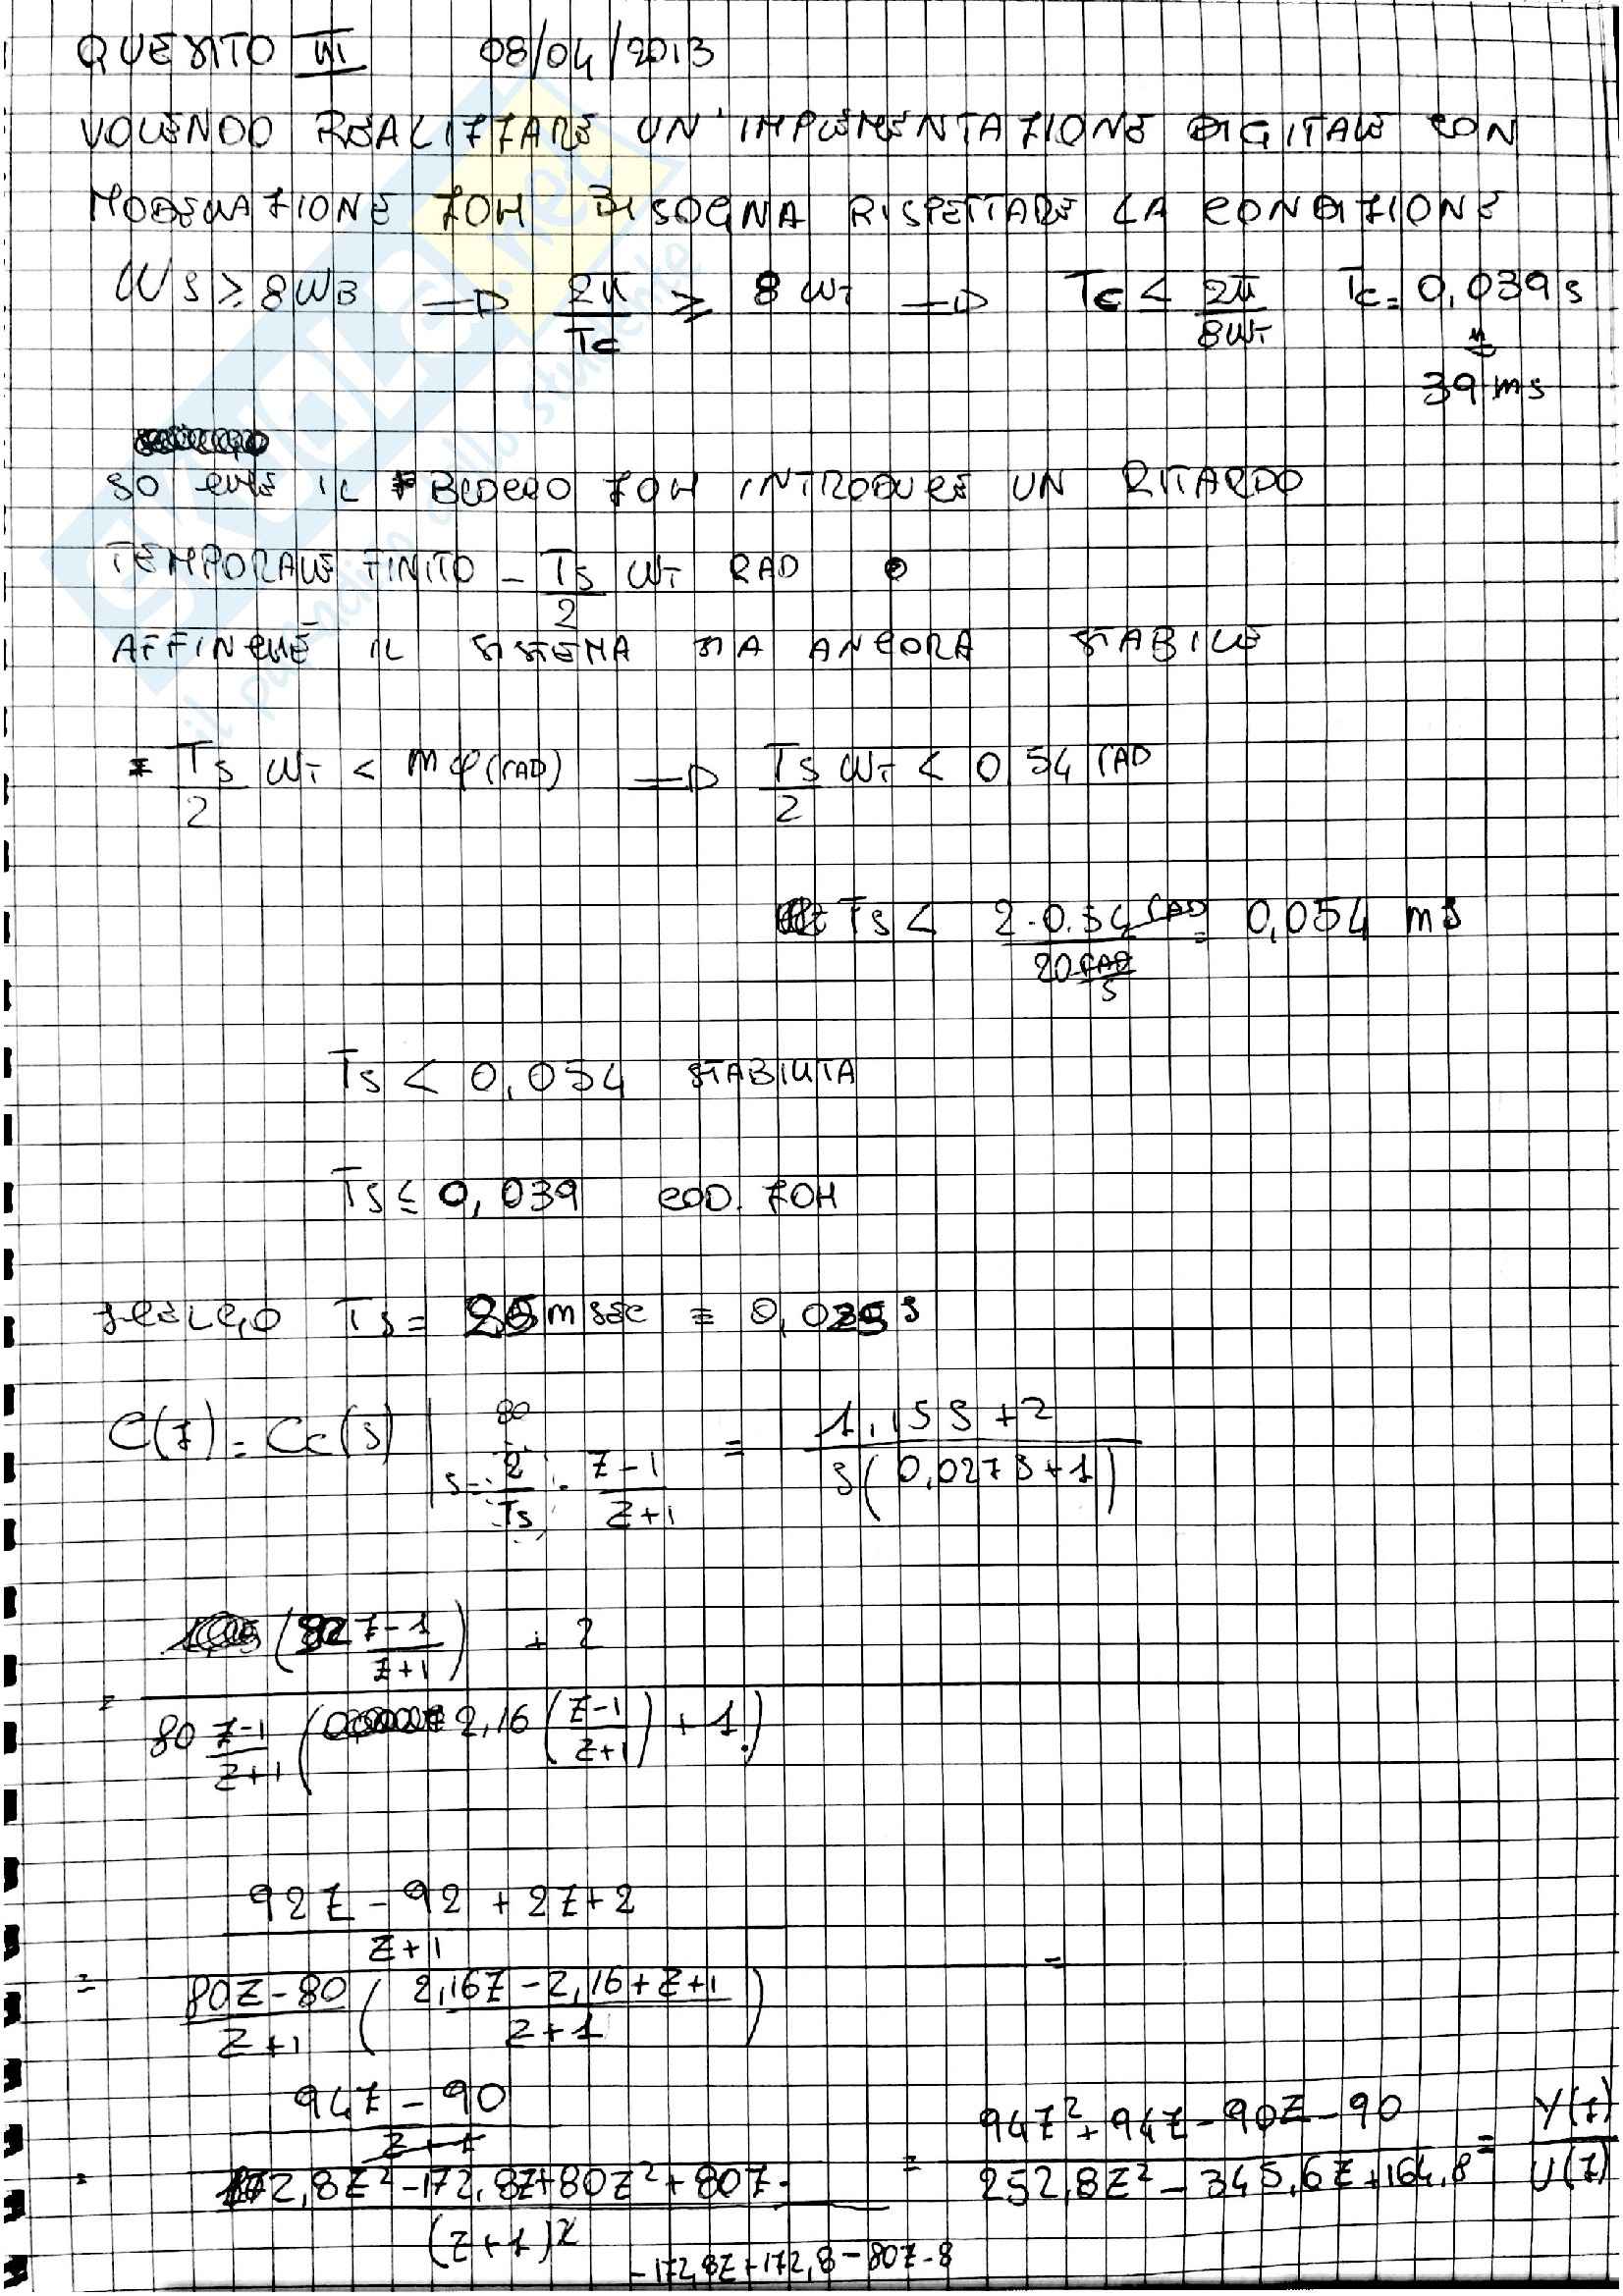 QUESITO III 08/04/2013
VOLENDO REALIZZARE UN'IMPLEMENTAZIONE DIGITALE CON
MODELLAZIONE ZOH BISOGNA RISPETTARE LA CONDIZIONE
WS ≥ 8WB => 2π/Tc ≥ 8 WT => Tc < 2π/8WT Tc = 0,039 s
39 ms
SO CHE IL BLOCCO ZOH INTRODUCE UN RITARDO
TEMPORALE FINITO - Ts/2 WT RAD
AFFINCHÉ IL SISTEMA SIA ANCORA STABILE
Ts/2 WT < mφ(RAD) => Ts/2 WT < 0,54 RAD
Ts < 2·0.54 RAD / 20 RAD/S = 0,054 ms
Ts < 0,054 STABILITA
Ts ≤ 0,039 COD. ZOH
SCELGO Ts = 25 m sec = 0,025 s
C(z) = Cc(s) | s = 2/Ts · z-1/z+1 = 1,15S+2 / S(0,027S+1)
80
= (92 z-1/z+1) + 2
80 z-1/z+1 (2,16 (z-1/z+1) + 1)
92z - 92 + 2z + 2
z+1
= 80z-80/z+1 (2,16z - 2,16 + z + 1 / z+1) =
94z - 90
z+1
= 172,8z² - 172,8z + 80z² + 80z - 172,8z + 172,8 - 80z - 8 / (z+1)² = 94z² + 94z - 90z - 90 / 252,8z² - 345,6z + 164,8 = Y(z)/U(z)
SKUOLA.net
il paradiso dello studente